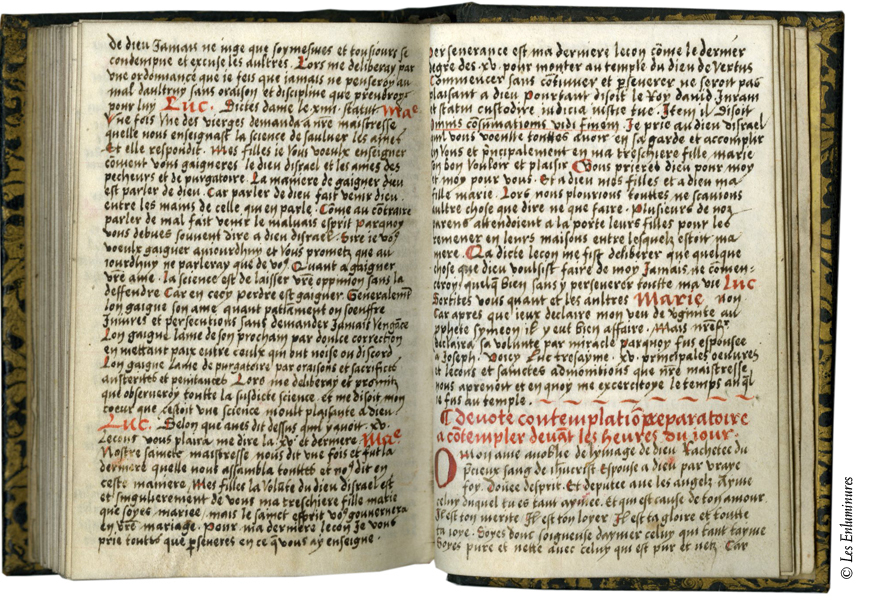 de dieu Jamais ne iuge que soymesmes et tousiours se
condempne et excuse les aultres. Lors me deliberay par
vne ordonnance que ie feis que jamais ne penseroy au
mal daultruy sans oraison et discipline que prendroys
pour luy Luc. Dictes dame le xiiii. statut Ma͠e
Vne fois vne des vierges demanda a n͠re maistresse
quelle nous enseignast la science de saulver les ames
Et elle respondit. Mes filles ie vous voeulx enseigner
com͠ent vous gaigneres le dieu disrael et les ames des
pecheurs et de purgatoire. La maniere de gaigner dieu
est parler de dieu. Car parler de dieu fait venir dieu
entre les mains de celle qui en parle. Co͠me au co͠traire
parler de mal fait venir le malvais esprit Parquoy
vous debues souvent dire a dieu disrael. Sire ie vo9
voeulx gaigner aujourdhuy et vous prometz que au
iourdhuy ne parleray que de vo9 Quant a gaigner
vr͠e ame. la science est de laisser vr͠e oppinion sans la
deffendre Car en cecy perdre est gaigner. Generalem͠t
lon gaigne son ame quant patiam͠ent on soeuffre
Iniures et persecutions sans demander Jamais venga͠ce
Lon gaigne lame de son prochain par doulce correction
en mettant paix entre ceulx qui ont noise ou discord
Lon gaigne lame de purgatoire par oraisons et sacrifices
austerites et penitances Lors me deliberay et promitz
que observeroy toutte la susdicte science. et me disoit mon
coeur que cestoit vne science moult plaisante a dieu
Luc. Selon que aves dit dessus quil y avoit .xv.
Lecons vous plaira me dire la .xv. et derniere Ma͠e
Nostre saincte maistresse nous dit vne fois et fut la
derniere quelle nous assembla touttes et no9 dit en
ceste maniere. Mes filles la volute du dieu disrael est
et singulierement de vous ma treschiere fille marie
que soyes mariee. mais le sainct esprit vo9 gouvernera
en vr͠e mariage. Pour ma derniere lecon Je vous
prie touttes que p͠severes en ce q͠ vous ay enseigne.
perseverance est ma derniere lecon co͠me le dernier
degre des .xv. pour monter au temple du dieu de vertus
Commencer sans co͠tinuer et p͠severer ne seroit pas
plaisant a dieu Pourtant disoit le Roy david Iuravi
et statui custodire iudicia iustitie tue. Item il disoit
omnis co͠sumationis vidi finem. Je prie au dieu disrael
quil vous voeulle touttes avoir en sa garde et accomplir
en vous et p͠ncipalement en ma treschiere fille marie
son bon vouloir et plaisir Vous prieres dieu pour moy
et moy pour vous. Et a dieu mes filles et a dieu ma
fille marie. Lors nous plourions touttes ne scavions
aultre chose que dire ne que faire. Plusieurs de noz
parens attendoient a la porte leurs filles pour les
remener en leurs maisons entre lesquelz estoit ma
mere. La dicte lecon me fist deliberer que quelque
chose que dieu voulsist faire de moy Jamais ne com͠en-
ceroy quelq͠ bien sans y perseverer toutte ma vie Luc
Sortites vous quant et les aultres Marie non
Car apres que ieux declaire mon veu de v͠ginite au
p͠phete symeon il y eut bien affaire. Mais
declaira sa volunte par miracle parquoy fus espousee
a Joseph. Voicy Luc tresayme .xv. principales oeuvres
et lecons et sainctes admonitions que nr͠e maistresse
nous aprenoit et en quoy me excercitoye le temps
ie fus au temple.
Devote contemplatio͠ preparatoire
a co͠templer deva͠t les heures du jour.
O mon ame anoblie de lymage de dieu Rachetee du
p͠cieux sang de ihucrist Espouse a dieu par vraye
foy. Douee desprit. Et deputee avec les angelz Ayme
celuy duquel tu es tant aymee. Et qui est cause de ton amour.
Il est ton merite Il est ton loyer Il est ta gloire et toutte
ta ioye. Soyes donc soigneuse daymer celuy qui tant tayme
Soyes pure et nette avec celuy qui est pur et netz Car
© Les Enluminures